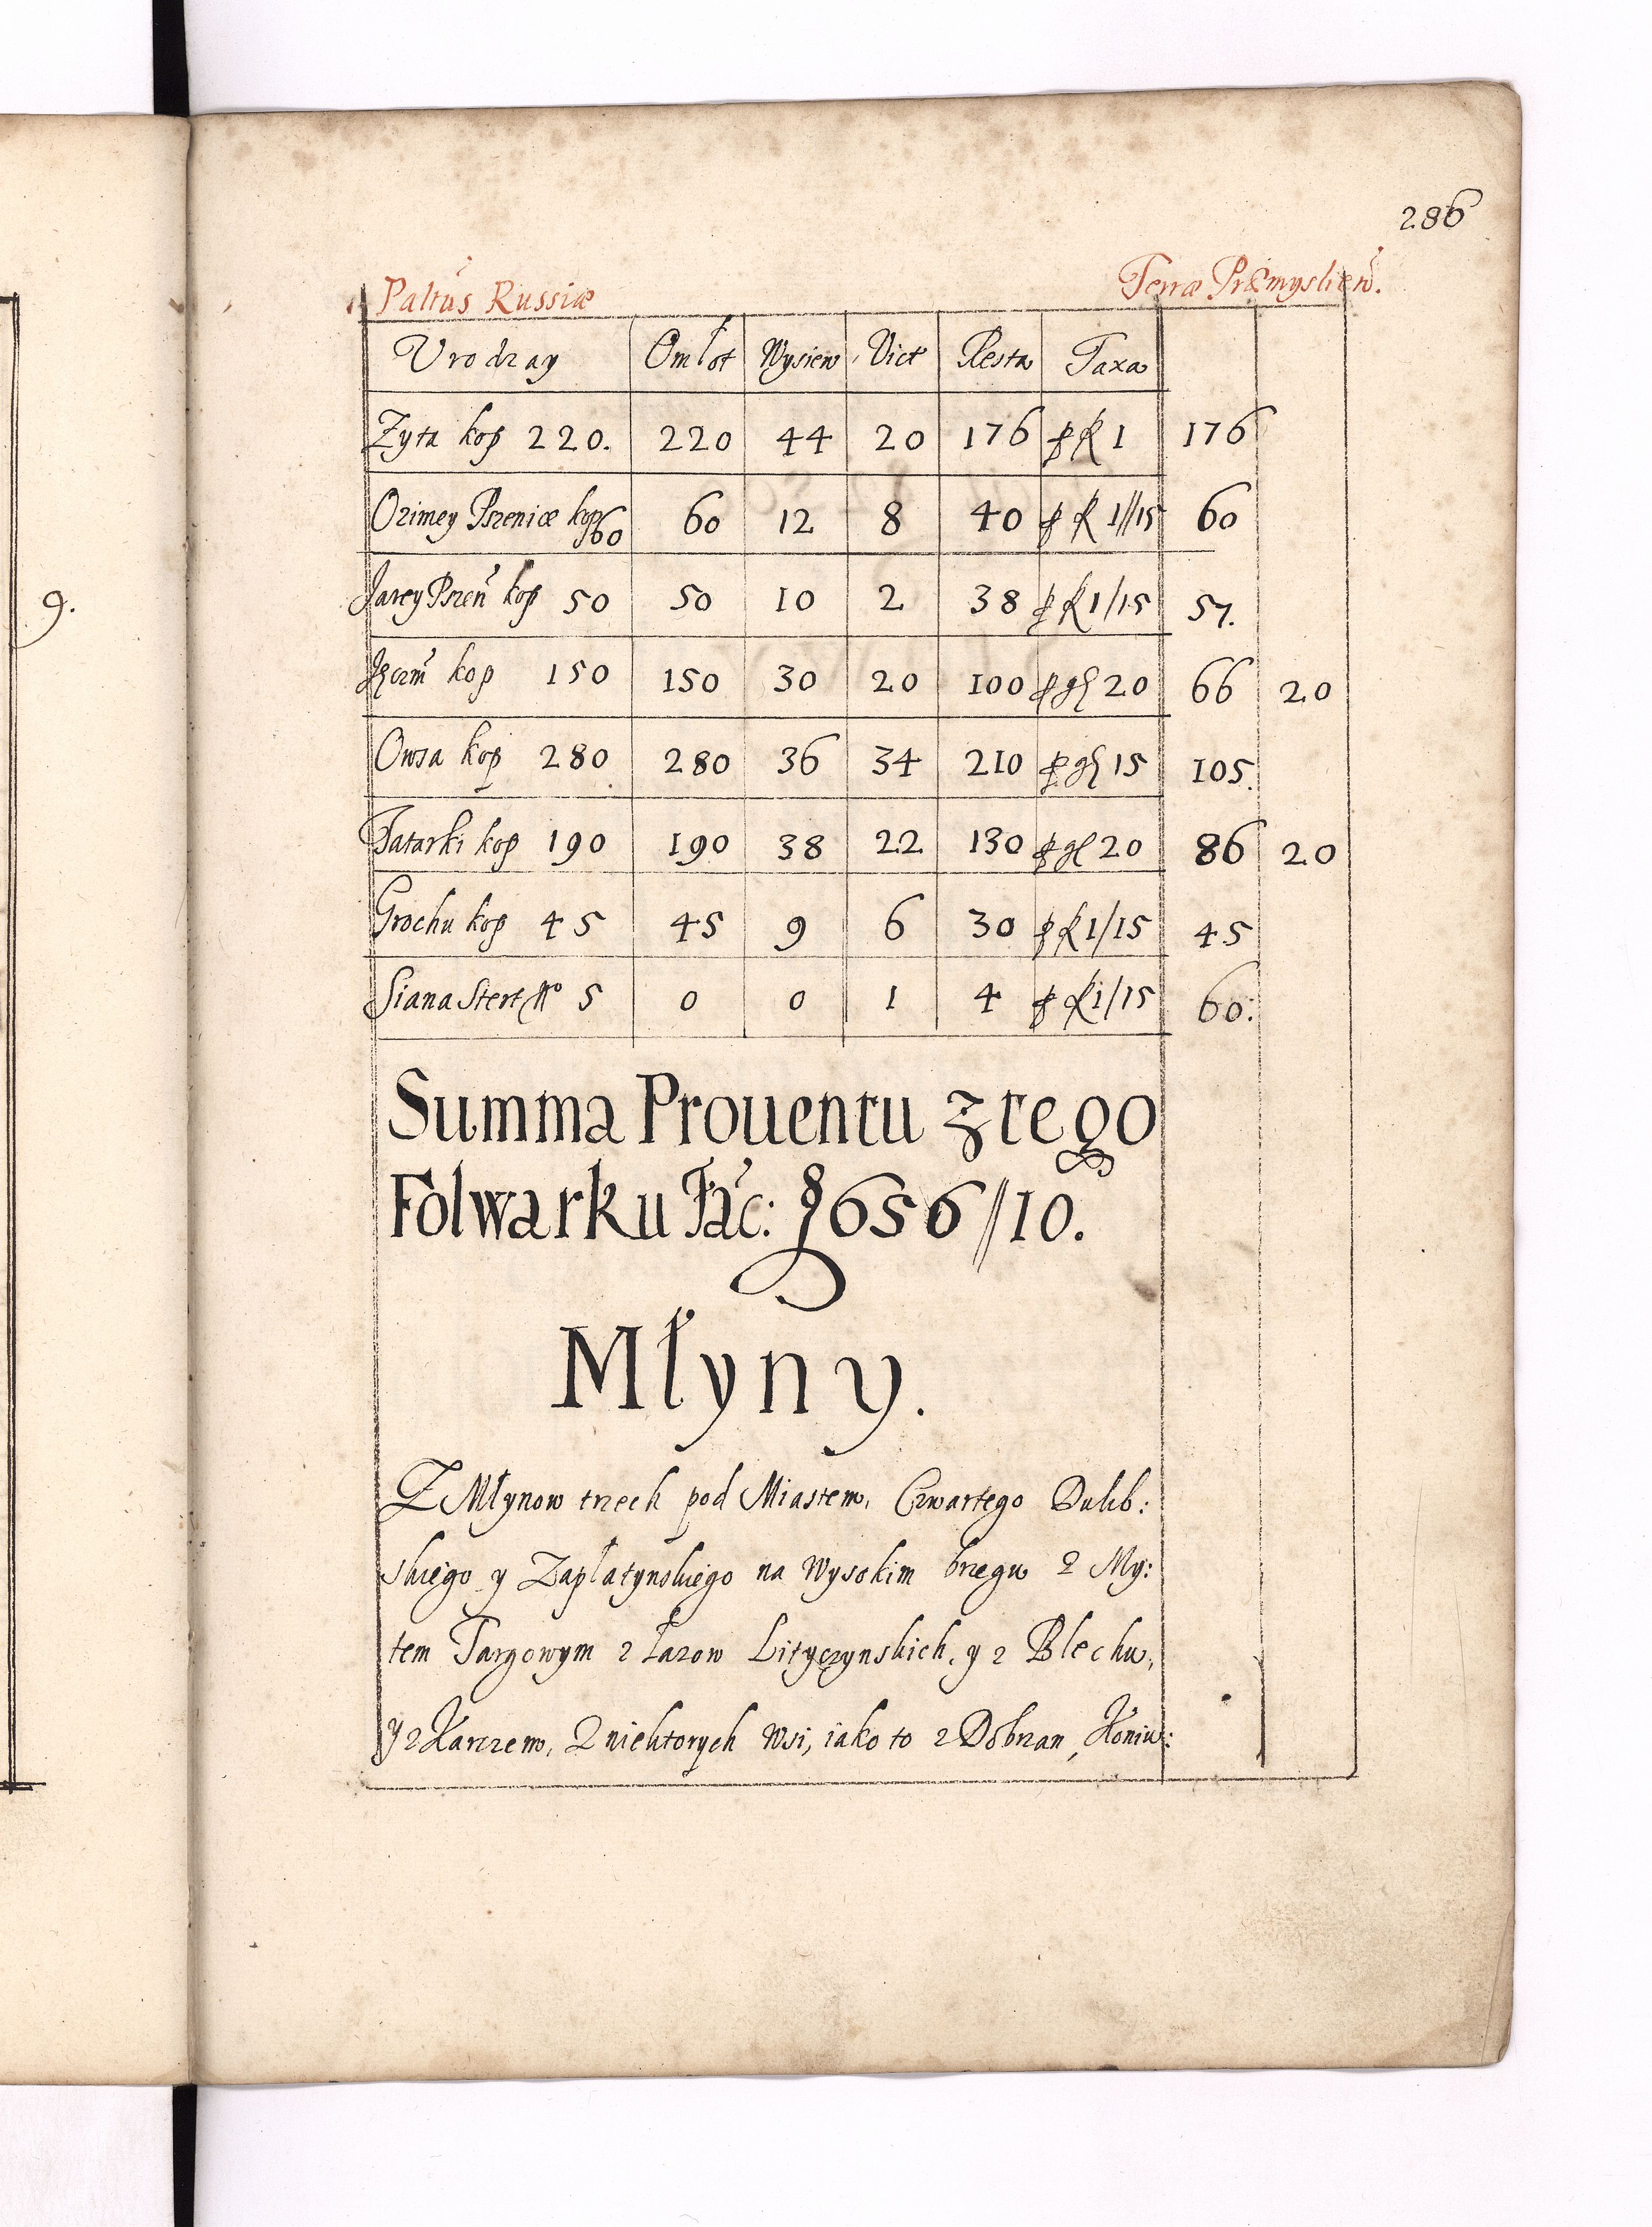 286
Paltus Russiæ Terræ Præmyslien.
9.
Vrodzay Omłot Wysiew Vict Resta Taxa
Zyta kop 220. 220 44 20 176 p fl 1 176
Ozimey Pszenice kop 60 60 12 8 40 p fl 1//15 60
Jarey Pszen kop 50 50 10 2 38 p fl 1/15 57.
Jęczm kop 150 150 30 20 100 p gl 20 66 20
Owsa kop 280 280 36 34 210 p gl 15 105.
Tatarki kop 190 190 38 22 130 p gl 20 86 20
Grochu kop 45 45 9 6 30 p fl 1/15 45
Siana Stert No 5 0 0 1 4 p fl i/15 60:
Summa Prouentu z tego
Folwarku Fac: 656//10.
Młyny.
Z Młynow trzech pod Miastem, Czwartego Dulib:
skiego y Zaplatynskiego na Wysokim brzegu z My:
tem Targowym z Łazow Lityczynskich, y z Blechu,
y z Karczem, Z niektorych Wsi, iako to z Dobrzan, Koniu: